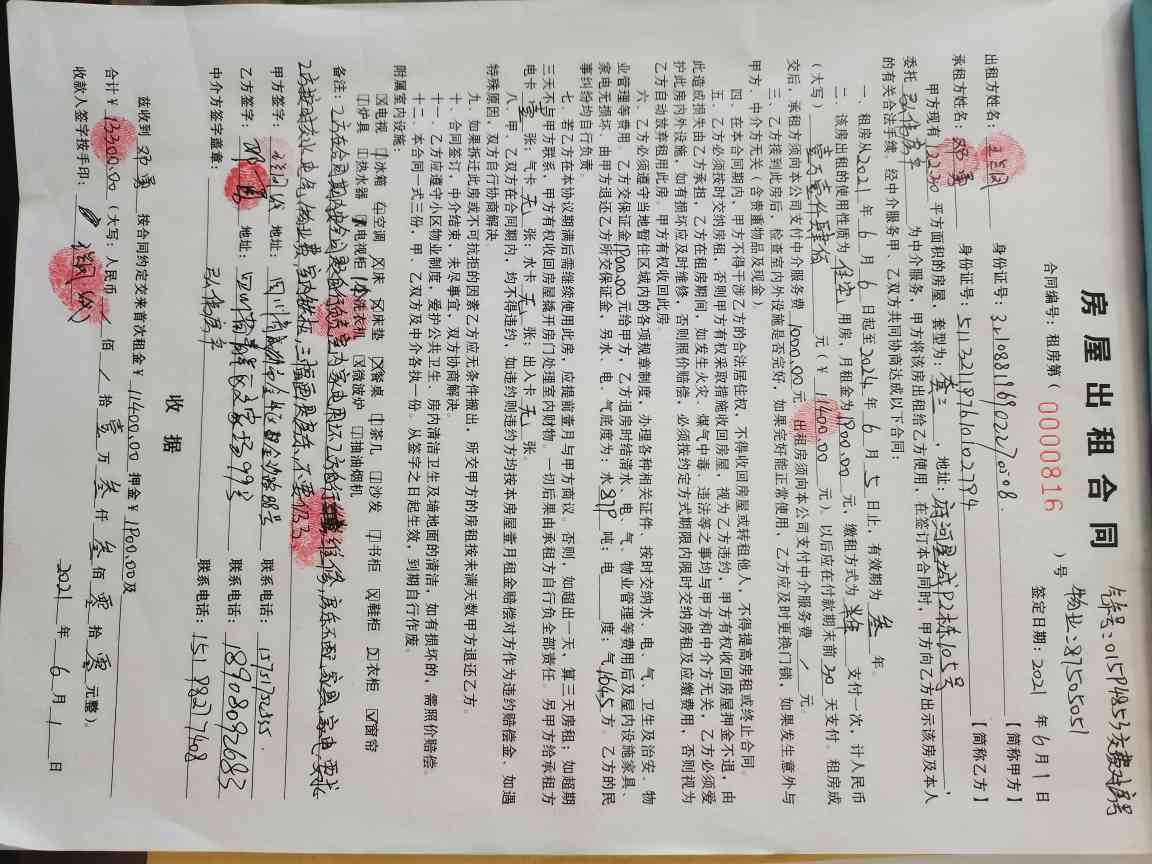 房屋出租合同
气号:015
交费对房号
物业:87505051
合同编号:租房第( 0000816 )号 签定日期:2021 年 6 月 1 日
出租方姓名: 身份证号: 【简称甲方】
承租方姓名:邓勇 身份证号: 【简称乙方】
甲方现有 平方面积的房屋,套型为:套三,地址:府河星城 ,
委托 为中介服务,甲方将该房出租给乙方使用,在签订本合同时,甲方向乙方出示该房及本人
的有关合法手续。经中介服务甲、乙双方共同协商达成以下合同:
一、租房从2021 年 6 月 6 日起至2024 年 6 月 5 日止,有效期为 叁 年。
二、该房出租的使用性质为 住宅 用房,月租金为1900.00 元,缴租方式为 半年 支付一次,计人民币
(大写) 壹万壹仟肆佰 元(¥ 11400.00 元)。以后应在付款期末前 30 天支付。租房成
交后,承租方须向本公司支付中介服务费 1000.00 元,出租房须向本公司支付中介服务费 / 元。
三、乙方接到此房后,检查室内外设施是否完好,如果完好能正常使用,乙方应及时更换门锁,如果发生意外与
甲方、中介方无关(含贵重物品及现金)
四、在本合同期内,甲方不得干涉乙方的合法居住权,不得收回房屋或转租他人,不得提高房租或终止合同。
五、乙方必须按时交纳租房,否则甲方有权采取措施收回房屋,视为乙方违约,甲方有权收回房屋押金不退,由
此造成损失由乙方承担,乙方在租房期间,如发生火灾、煤气中毒、违法等之事均与甲方和中介方无关,乙方必须爱
护此房内外设施,如有损坏应及时维修,否则照价赔偿,必须按约定方式期限内限时交纳房租及应缴费用,否则视为
乙方自动放弃租用此房。甲方有权收回此房。
六、乙方必须遵守当地暂住区域内的各项规章制度,办理各种相关证件、按时交纳水、电、气、卫生及治安、物
业管理等费用。乙方交保证金1900.00元给甲方,乙方退房时结清水、电、气、物业管理等费用后及屋内设施家具、
家电无损坏,由甲方退还乙方所交保证金,另水、电、气底度为:水 吨;电 度;气1645 方。乙方的民
事纠纷均自行负责
七、若乙方在本协议期满后需继续使用此房,应提前壹月与甲方商议。否则,如超出一天,算三天房租;如超期
三天不与甲方联系,甲方有权收回房屋撬开房门处理室内财物,一切后果由承租方自行负全部责任。另甲方给承租方
电卡 壹 张;气卡 无 张;水卡 无 张;出入卡 无 张。
八、甲、乙双方在合同期内,均不得违约,如违约则违约方均按本房屋壹月租金赔偿对方作为违约赔偿金,如遇
特殊原因,双方自行协商解决
九、如果拆迁此房或不可抗拒的因素乙方应无条件搬出,所交甲方的房租按未满天数甲方退还乙方。
十、合同签订,中介结束,未尽事宜,双方协商解决。
十一、乙方应遵守小区物业制度,爱护公共卫生,房内清洁卫生及墙地面的清洁,如有损坏的,需照价赔偿。
十二、本合同一式三份,甲、乙双方及中介各执一份。从签字之日起生效,到期自行作废。
附属室内设施:
☑电视 冰箱 空调 床 床垫 餐桌 茶几 沙发 书柜 鞋柜 衣柜 ☑窗帘
炉具 热水器 电视柜 洗衣机 微波炉 抽油烟机
备注:乙方在合同期内
甲方签字: 地址: 联系电话:
乙方签字:邓勇 地址: 联系电话:18908092683
中介方签字盖章: 联系电话:15198227408
收 据
兹收到 邓勇 按合同约定交来首次租金¥ 11400.00 押金¥ 1900.00及
合计¥ 13300.00 (大写:人民币 / 佰 / 拾 壹 万 叁 仟 叁 佰 零 拾 零 元整)。
收款人签字按手印: 2021 年 6 月 1 日